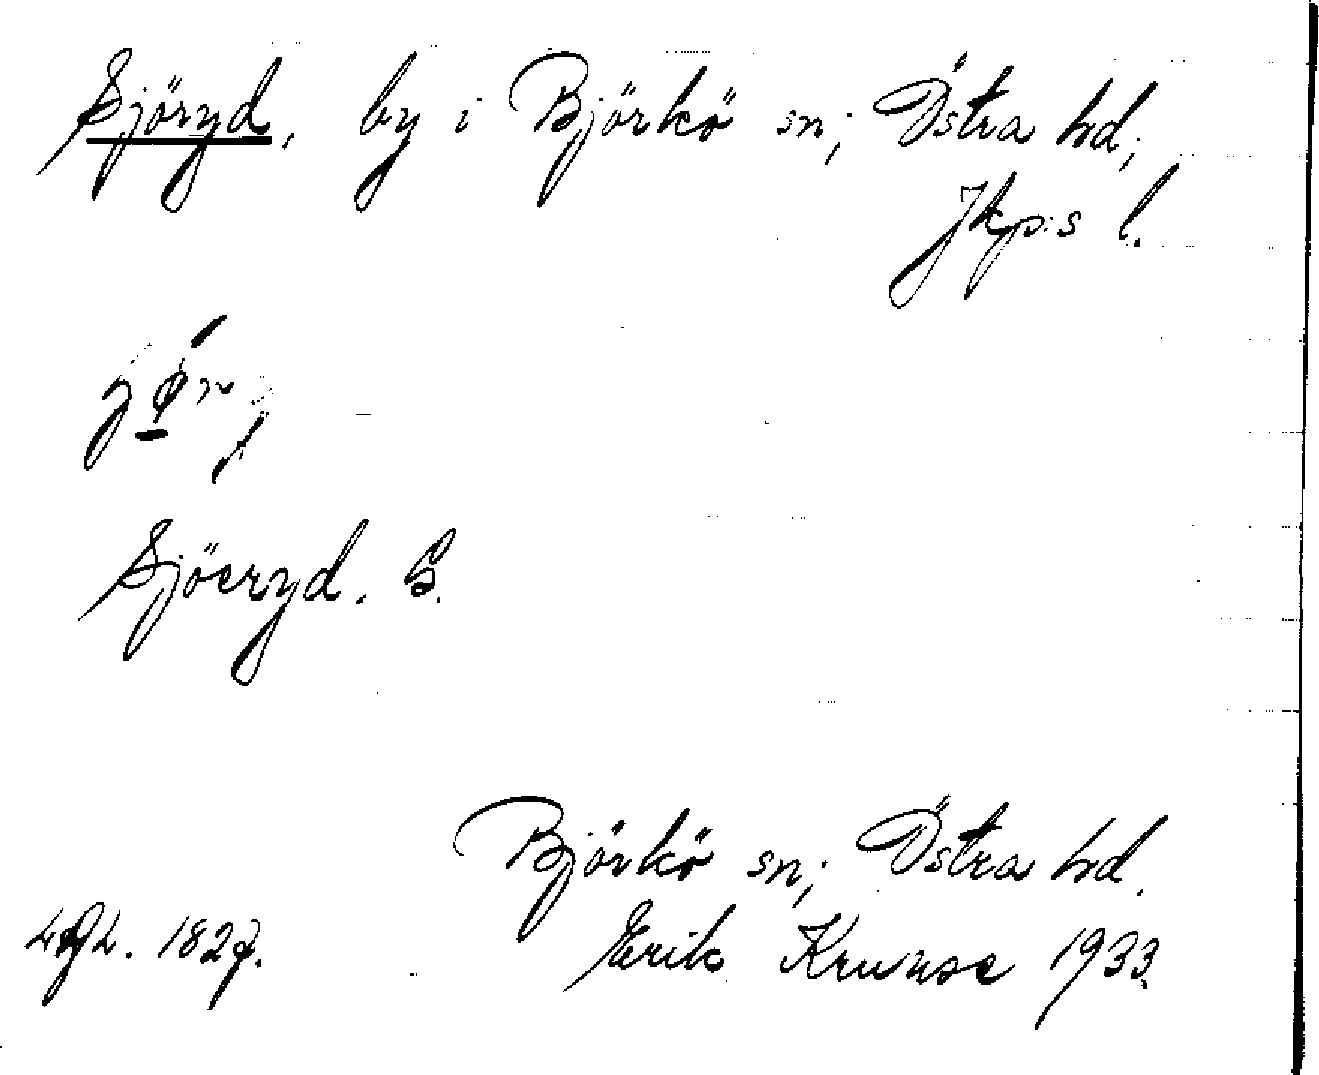 Sjöryd, by i Björkö sn; Östra hd;
Jkp:s l.
Sjöeryd. G.
Björkö sn; Östra hd.
Erik Krunse 1933.